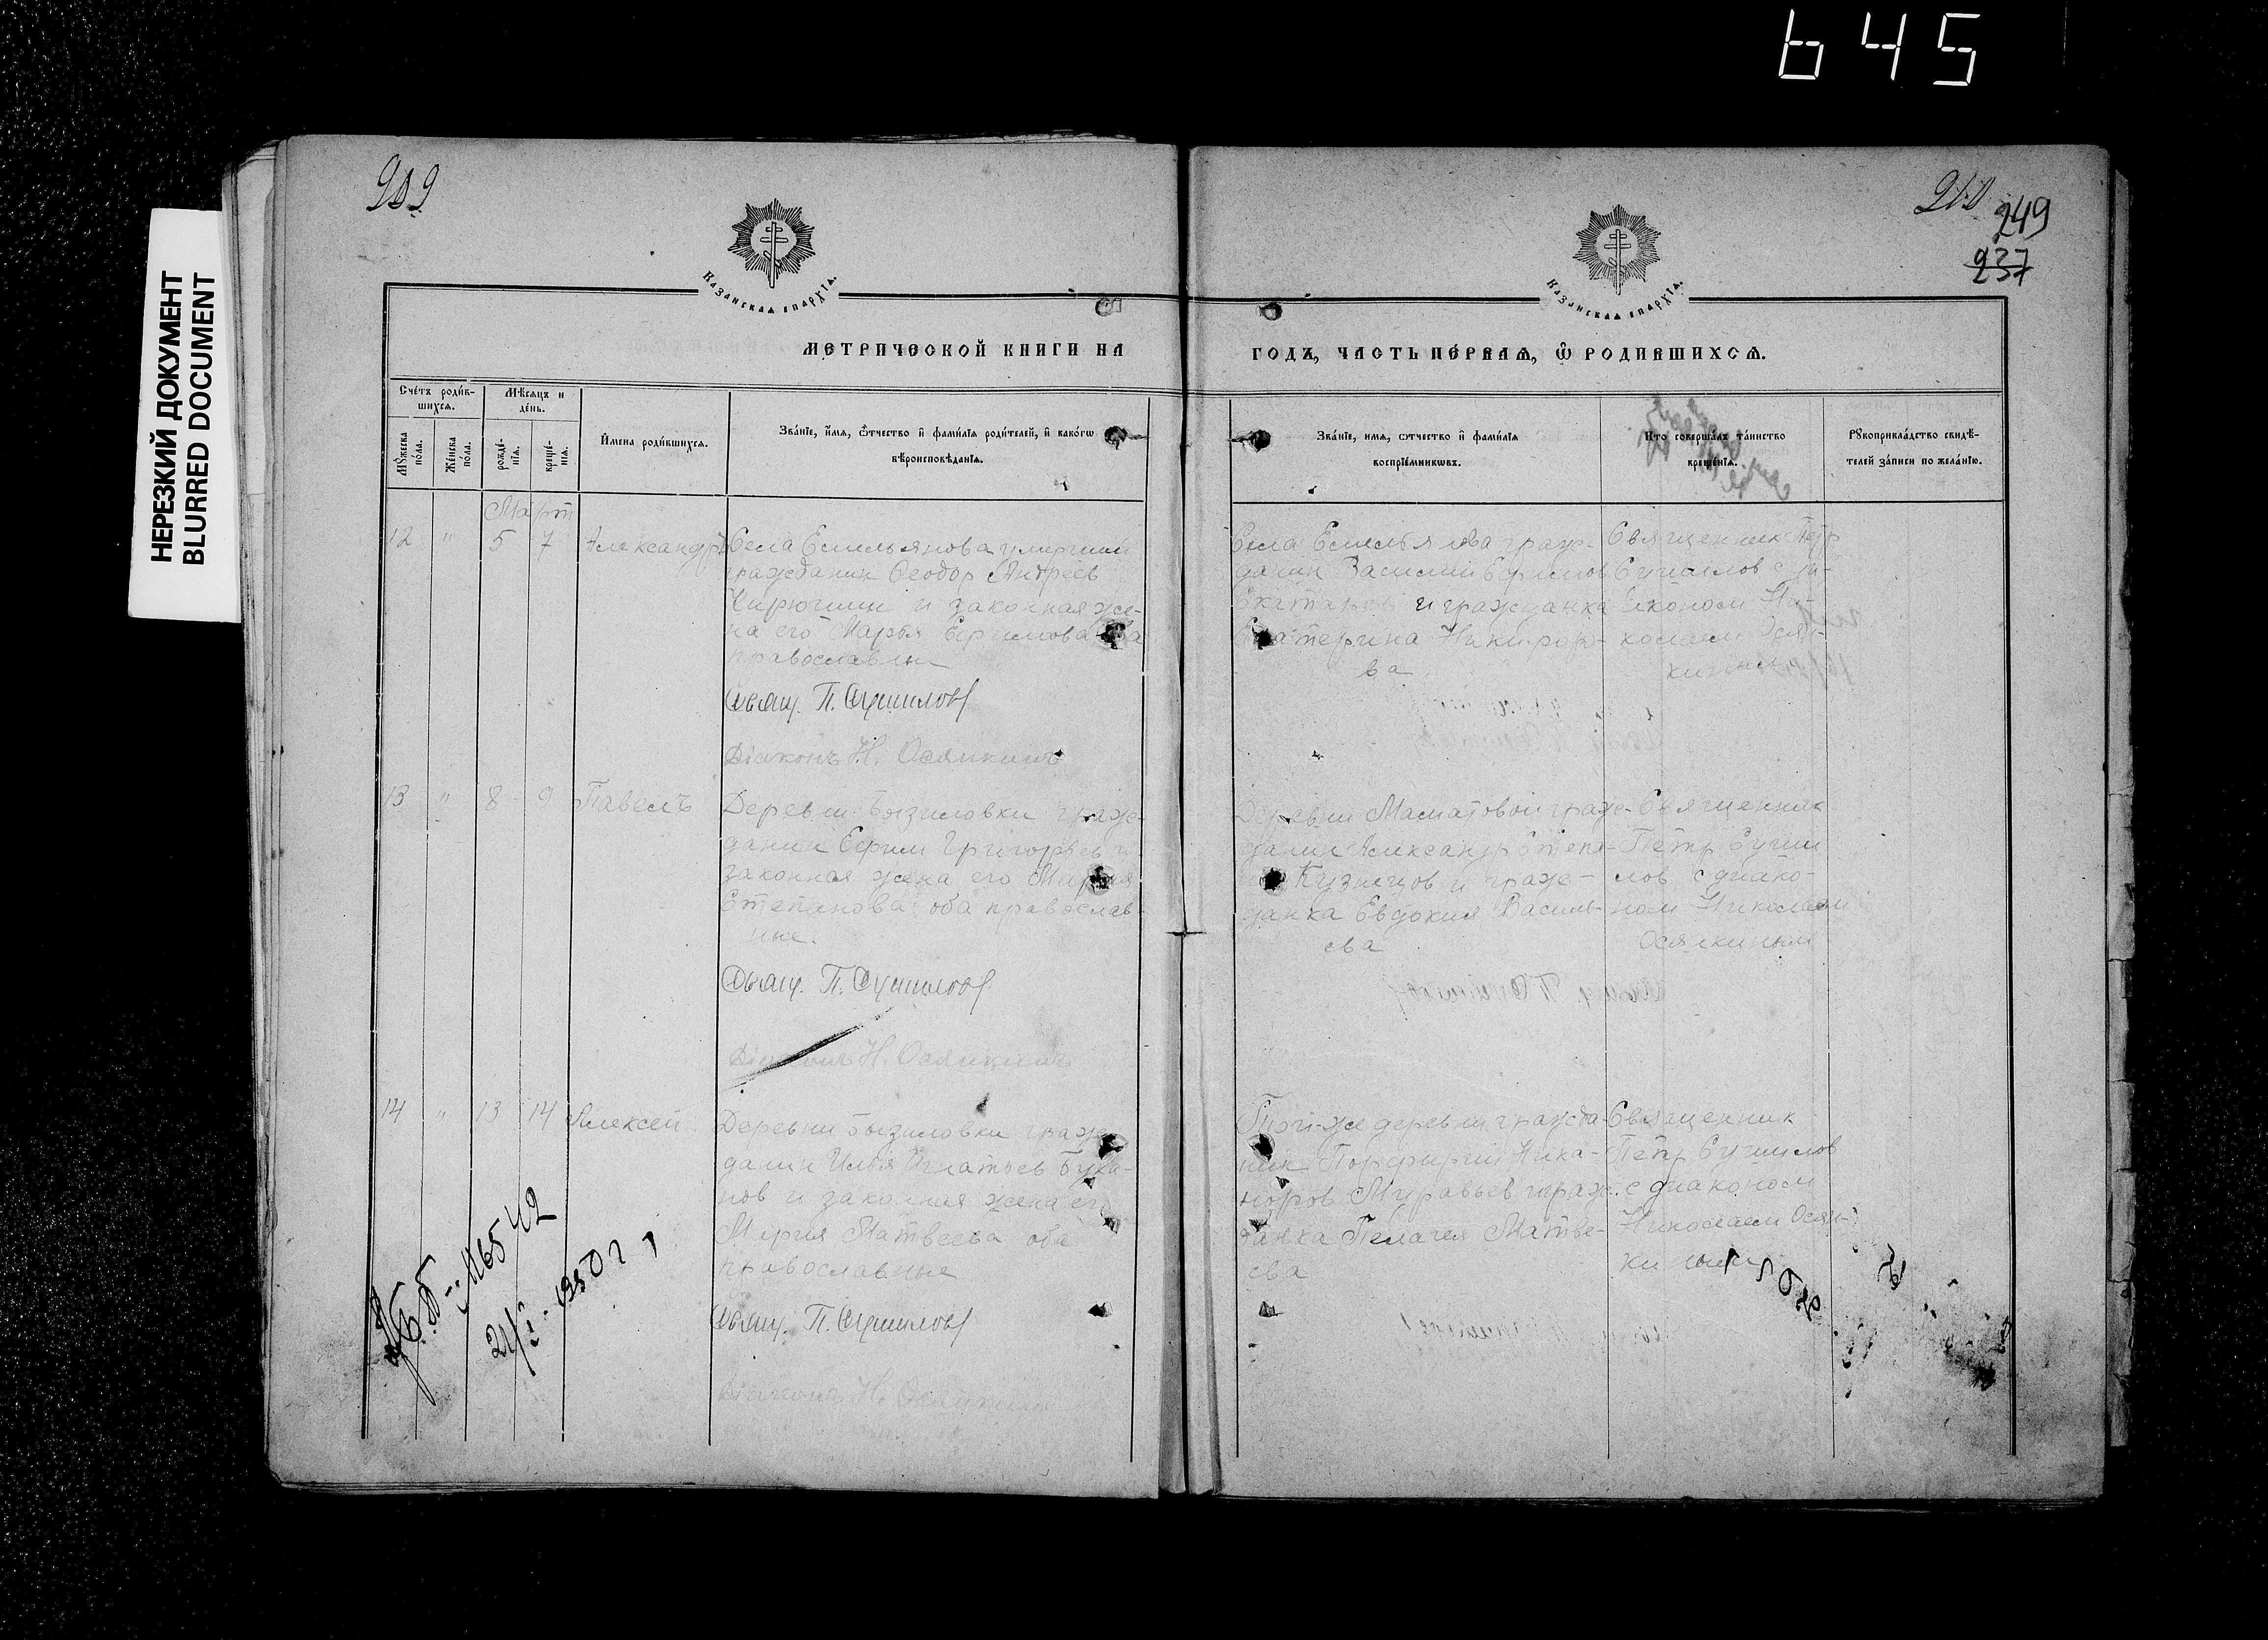 645
НЕРЕЗКИЙ ДОКУМЕНТ
BLURRED DOCUMENT
209
210
249
237
Казанская епархїя.
Казанская епархїя.
МЕТРИЧЕСКОЙ КНИГИ НА
ГОДЪ, ЧАСТЬ ПЕ́РВАЯ, Ѿ РОДИВШИХСЯ.
Сче́тъ роди́в-
шихся.
Мꙋ́жеска по́ла.
Же́нска по́ла.
Мѣ́сяцъ и
де́нь.
рожде́-
нїя.
креще́-
нїя.
И҆мена роди́вшихся.
Зва́нїе, и҆́мя, ѻ҆́тчество и҆ фами́лїя роди́телей, и҆ како́гѡ
вѣроисповѣ́данїя.
Зва́нїе, имя, ѻтчество и҆ фами́лїя
воспрїе́мникѡвъ.
Кто соверша́лъ та́инство
креще́нїя.
Рꙋкоприкла́дство свидѣ́-
телей за́писи по жела́нїю.
Март
12 " 5 7 Александръ
Села Емельянова умерший
гражданин Феодор Андреев
Кирюшин и законная же-
на его Марья Ефимова оба
православные
Свящ. П. Сушилов
Діаконъ Н. Осянкинъ
Села Емельянова граж-
данин Василий Ефимов
и гражданка
Екатерина Никифоро-
ва
Священник Петр
Сушилов с ди-
яконом Ни-
колаем Осян-
киным
13 " 8 9 Павелъ
Деревни Бызиловки граж-
данин Ефим Григорьев и
законная жена его Мария
Степанова оба православ-
ные.
Свящ. П. Сушилов
Діаконъ Н. Осянкинъ
Деревни Маматовой граж-
данин Александр Степа-
Кузнецов и граж-
данка Евдокия Василь-
ева
Священник
Петр Суши
лов с диако-
ном Николаем
Осянкиным
14 " 13 14 Алексей
Деревни Бызиловки граж-
данин Илья Игнатьев Бука-
нов и законная жена его
Мария Матвеева оба
православные
Свящ. П. Сушилов
Діаконъ Н. Осянкинъ
Той-же деревни гражда-
нин Порфирий Ника-
норов Муравьев и граж-
данка Пелагея Матве-
ева
Священник
Петр Сушилов
с диаконом
Николаем Осян-
киным
21/I-1950 г.